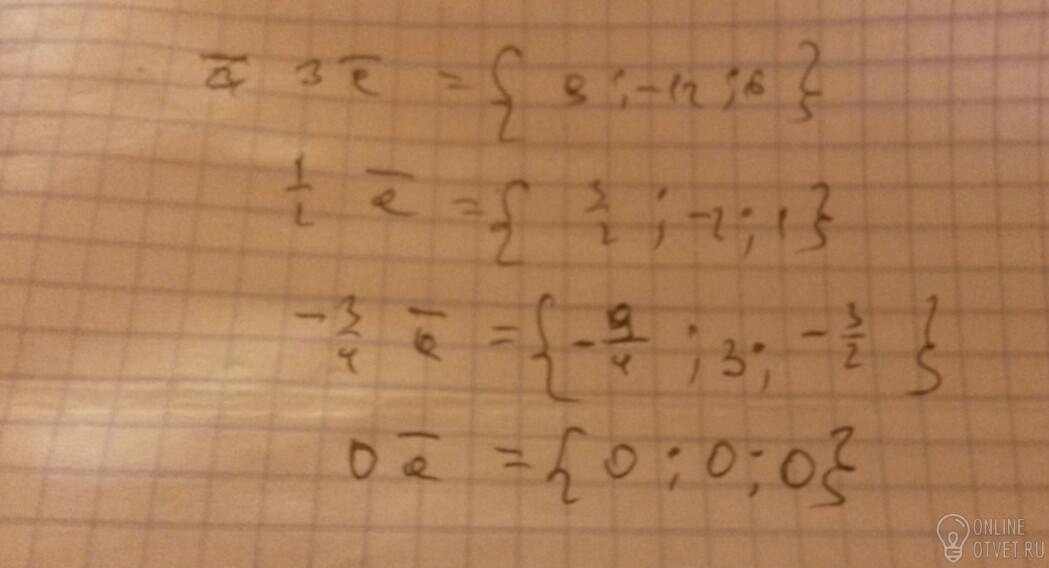 a̅ 3 a̅ = { 9 ; -12 ; 6 }
1/2 a̅ = { 3/2 ; -2 ; 1 }
-3/4 a̅ = { -9/4 ; 3 ; -3/2 }
0 a̅ = { 0 ; 0 ; 0 }
ONLINE
OTVET.RU